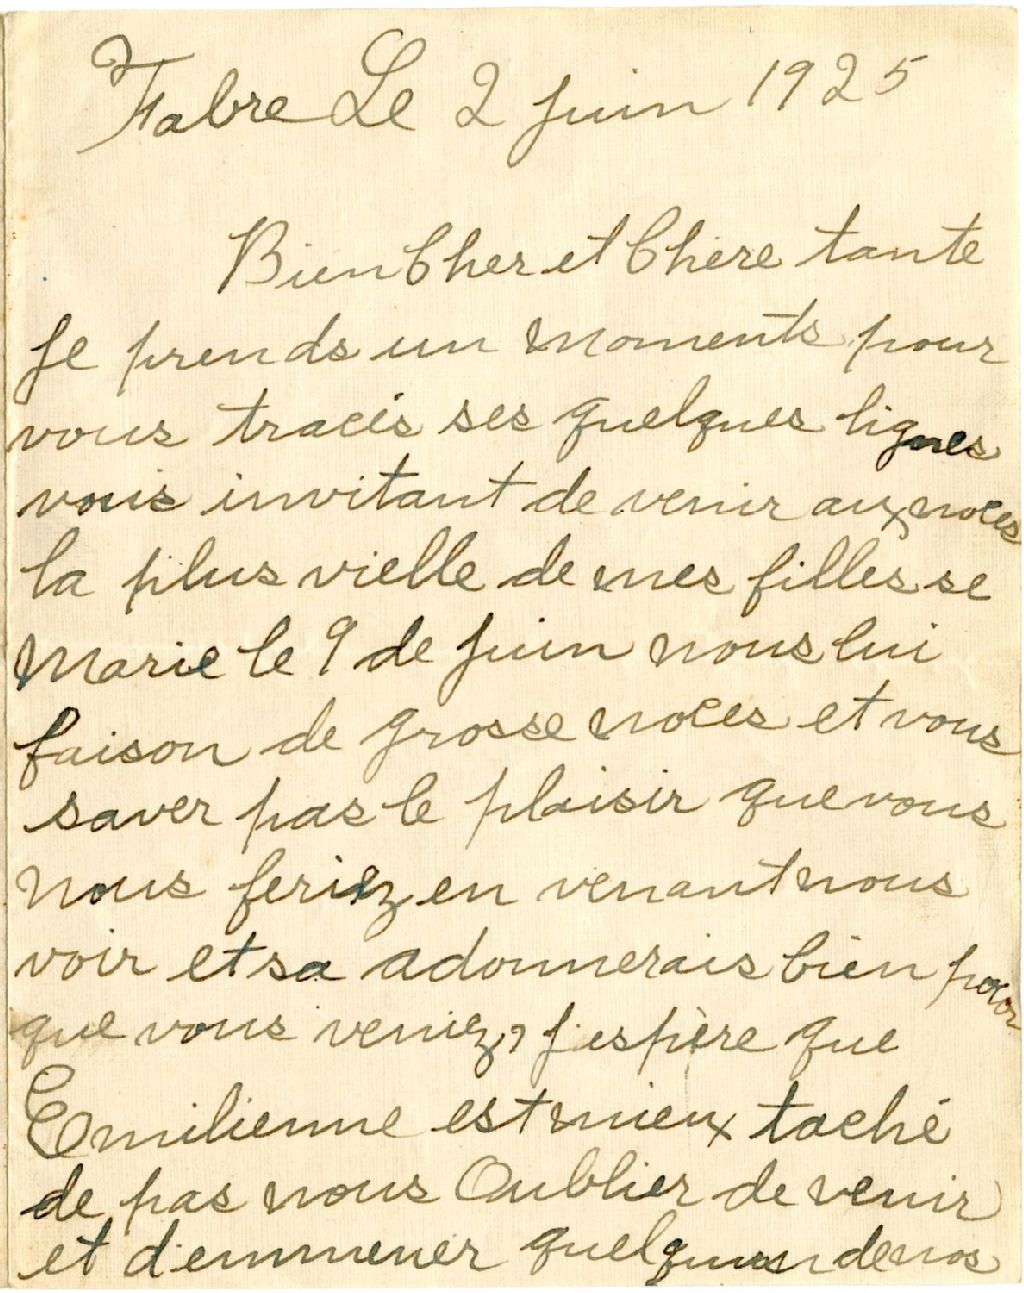 Fabre Le 2 juin 1925
Bien Cher et Chere tante
Je prends un moments pour
vous tracés ses quelques lignes
vous invitant de venir aux noces
la plus vielle de mes filles se
Marie le 9 de juin nous lui
faison de grosse noces et vous
saver pas le plaisir que vous
nous feriez en venant nous
voir et sa adonnerais bien pour
que vous veniez, j'espère que
Emilienne est mieux taché
de pas nous Oublier de venir
et d'emmener quelqun de nos